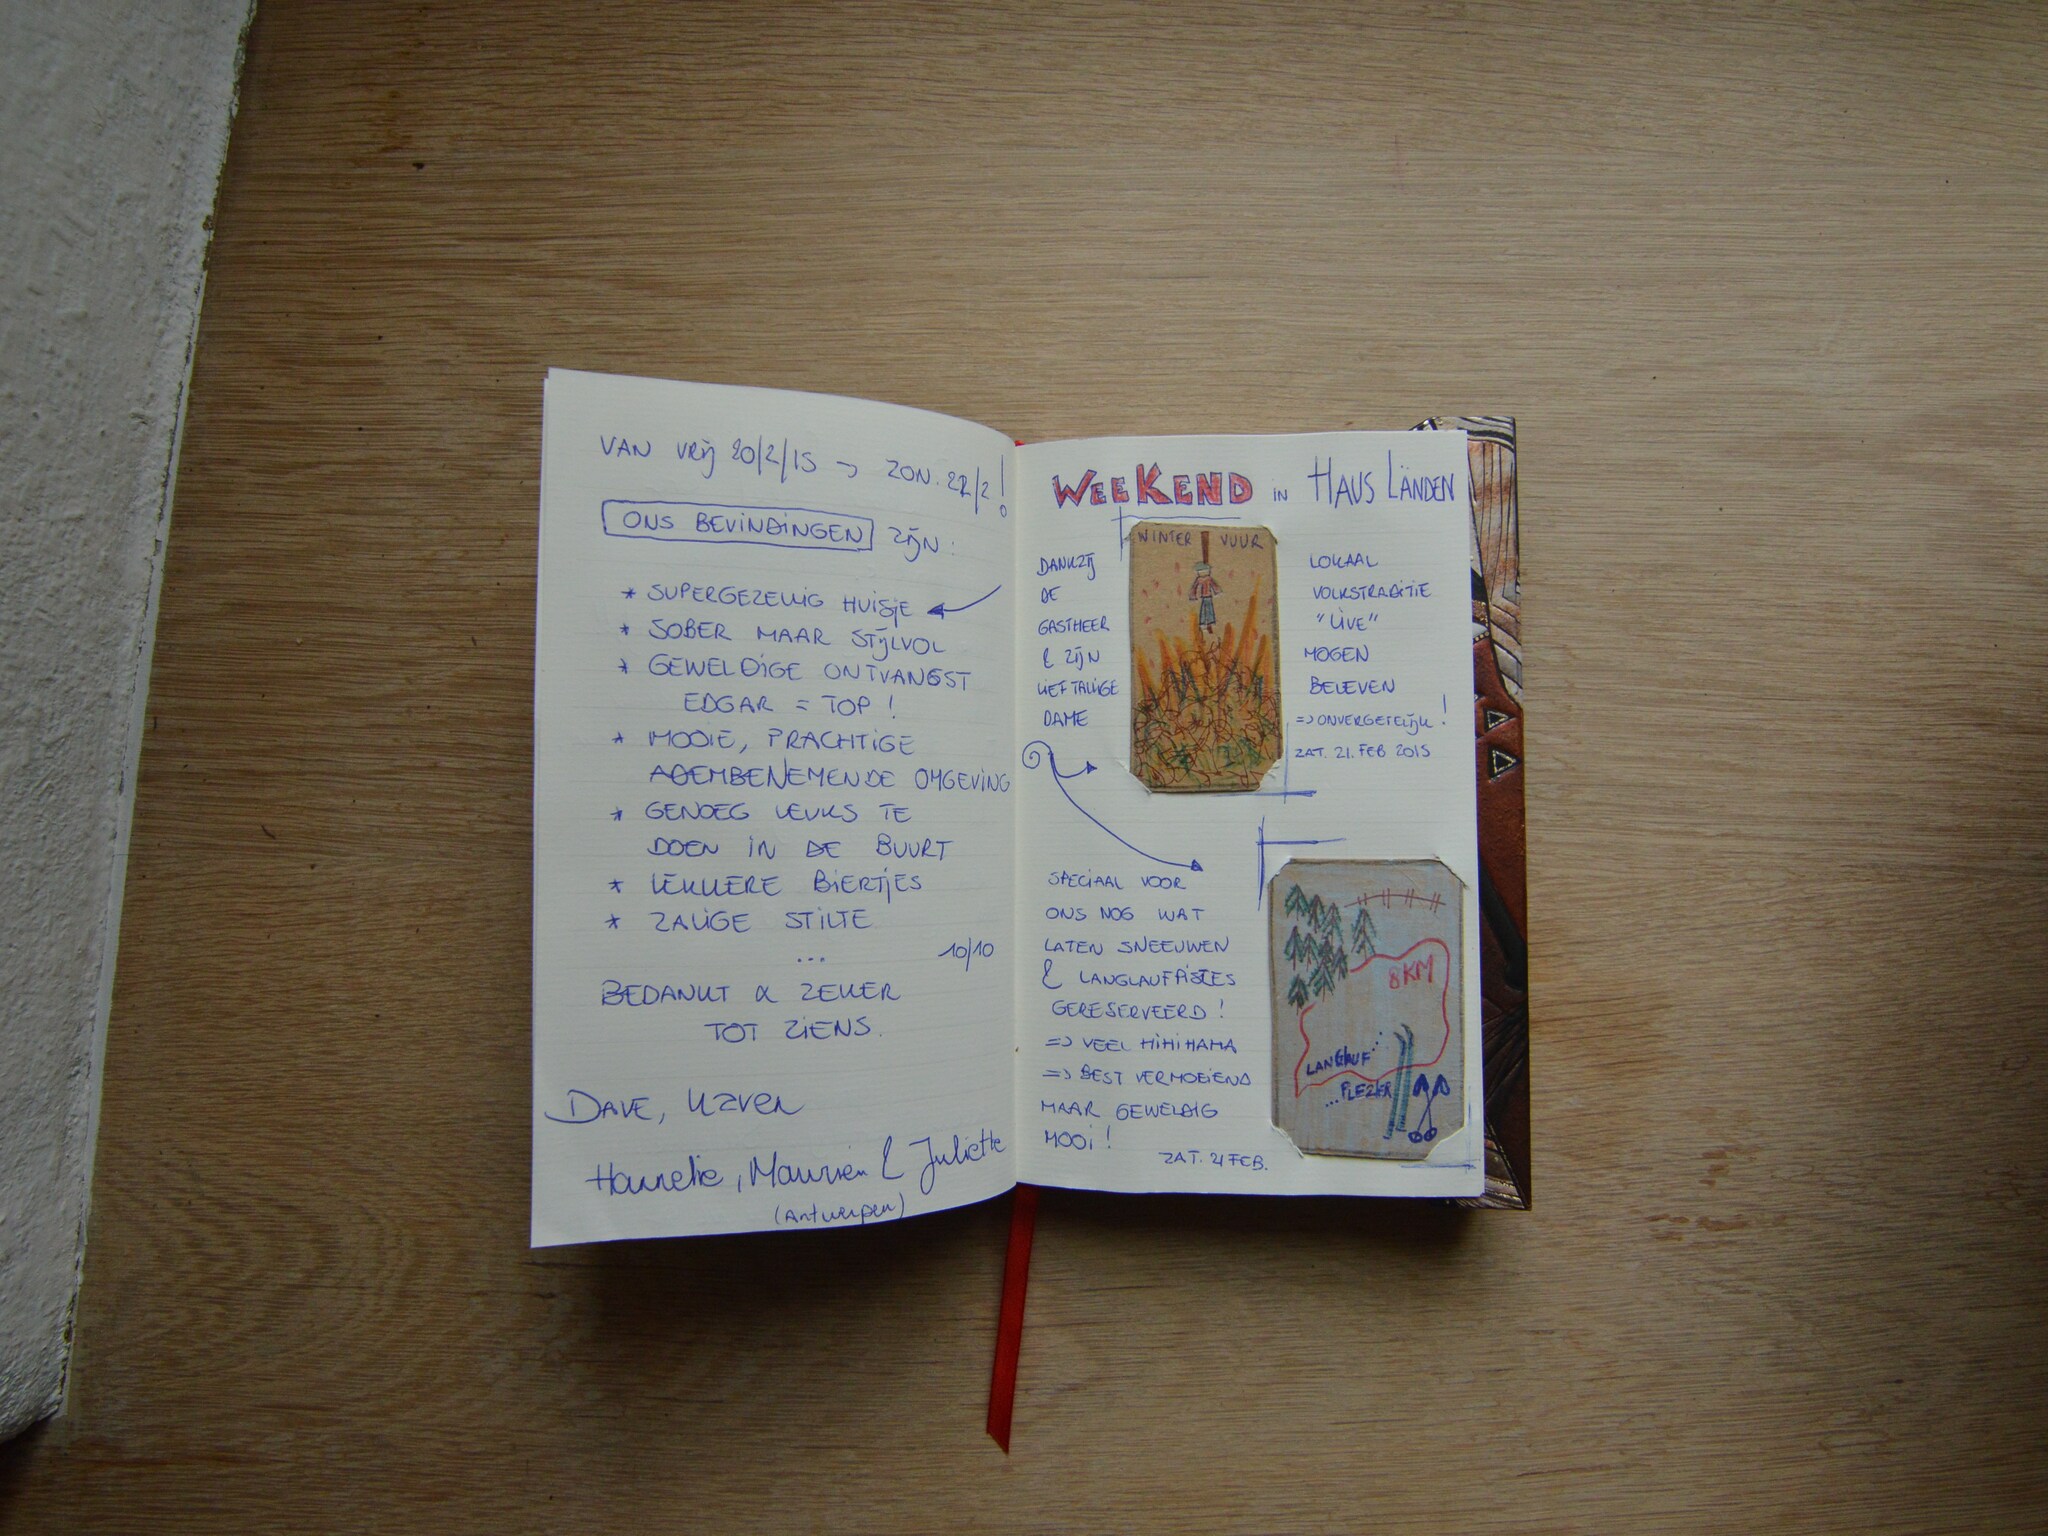 VAN VRIJ 20/2/15 → ZON. 22/2!
ONS BEVINDINGEN ZIJN:
* SUPERGEZELLIG HUISJE
* SOBER MAAR STIJLVOL
* GEWELDIGE ONTVANGST
EDGAR = TOP!
* MOOIE, PRACHTIGE
ADEMBENEMENDE OMGEVING
* GENOEG LEUKS TE
DOEN IN DE BUURT
* LEKKERE BIERTJES
* ZALIGE STILTE
... 10/10
BEDANKT & ZEKER
TOT ZIENS.
DAVE,
Hannelie, & Juliette
(Antwerpen)
WEEKEND IN HAUS LÄNDEN
WINTER VUUR
DANKZIJ
DE
GASTHEER
& ZIJN
LIEFTALLIGE
DAME
LOKAAL
VOLKSTRADITIE
"LIVE"
MOGEN
BELEVEN
=> ONVERGETELIJK!
ZAT. 21. FEB 2015
SPECIAAL VOOR
ONS NOG WAT
LATEN SNEEUWEN
& LANGLAUFPISTES
GERESERVEERD!
=> VEEL HIHIHAHA
=> BEST VERMOEIEND
MAAR GEWELDIG
MOOI!
ZAT. 21 FEB.
8KM
LANGLAUF...
...PLEZIER